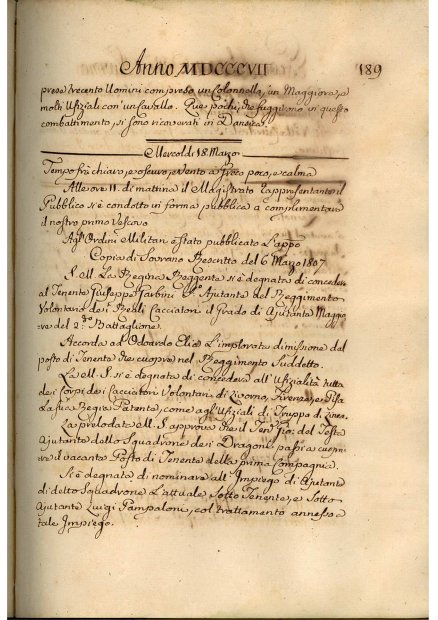 Anno MDCCCVII 189
prese trecento Uomini compreso un Colonnello, un Maggiore, e
molti Ufiziali con un Cavallo. Que' pochi, che fuggirono in questo
combattimento, si sono ricovrati in Danzica.
Mercoldì 18 Marzo
Tempo frà chiaro, e oscuro, e Vento a Greco poco, e calma
Alle ore 11 di mattina il Magistrato rappresentante il
Pubblico si è condotto in forma pubblica a complimentare
il nostro primo Vescovo
Agl'Ordini Militari è stato pubblicato l'appo
Copia di Sovrano Rescritto del 6 Marzo 1807
S. M. La Regina Reggente si è degnata di concedere
al Tenente Giuseppe Ajutante del Reggimento
Volontario dei Reali Cacciatori il Grado di Ajutante Maggio
re del 2.do Battaglione.
Accorda ad Odoardo Elice l'implorata dimissione dal
posto di Tenente che cuopre nel Reggimento Suddetto.
La M. S. si è degnata di concedere all'Ufizialità tutta
dei Corpi dei Cacciatori Volontari di Livorno, Firenze, e Pisa
La sua Regia Patente, come agl'Ufiziali di Truppa di Linea.
La prelodata M. S. approva che il Ten.te del
Ajutante dello Squadrone dei Dragoni passi a cuopri
re il vacante Posto di Tenente della prima Compagnia.
Si è degnata di nominare all'Impiego di Ajutante
di detto Squadrone L'attuale Sotto Tenente, e Sotto
Ajutante Luigi Pampaloni, col trattamento annesso a
tale Impiego.